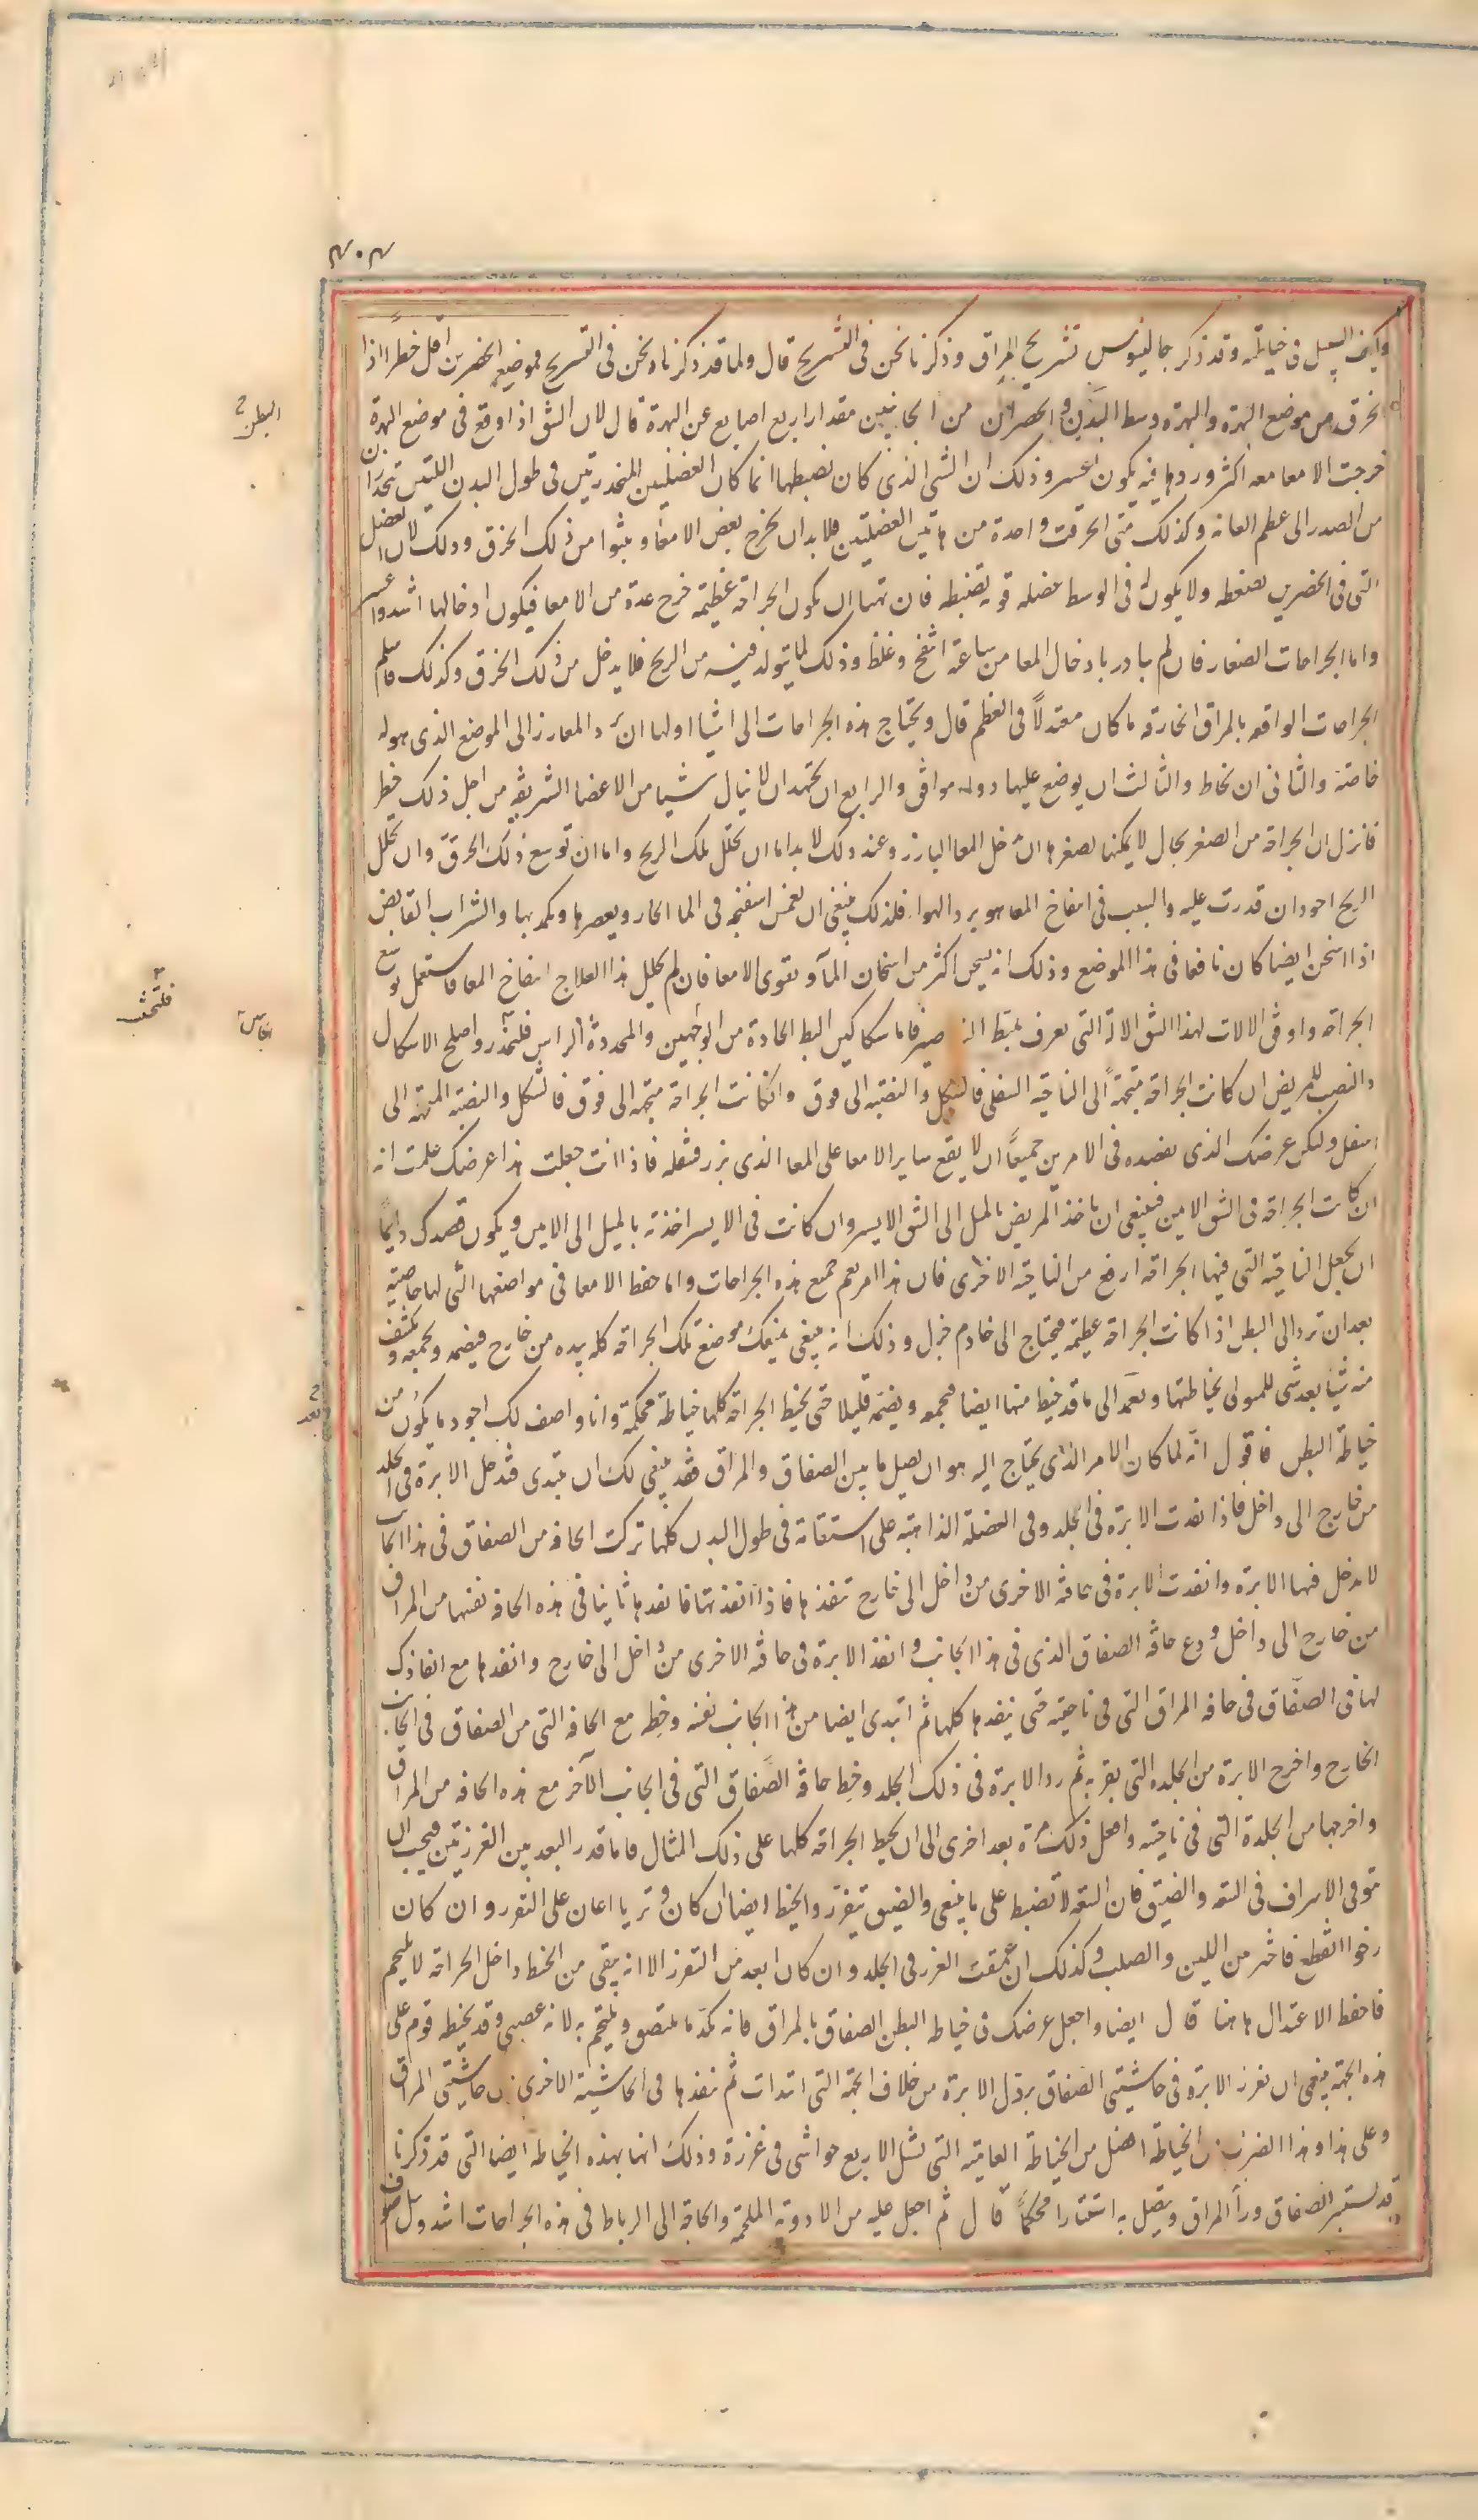 ٣٠٣
وكيف السبيل في خياطته وقد ذكر جالينوس تشريح المراق وذكرنا نحن في التشريح قال ولما قد ذكرناه نحن في التشريح فموضع الخصرين اقل خطرًا اذا
انخرق من موضع البهرة والبهرة وسط البدن والخصران من الجانبين مقدار اربع اصابع عن البهرة قال لان الشق اذا وقع في موضع البهرة
خرجت الامعا معه اكثر وردها فيه يكون اعسر وذلك ان الشي الذي كان يضبطها انما كان العضلتين المنحدرتين في طول البدن اللتين تنحدران
من الصدر الى عظم العانه وكذلك متى انخرقت واحدة من هاتين العضلتين فلا بد ان يخرج بعض الامعا وينتوا من ذلك الخرق وذلك لان العضل
التي في الخصرين تضغطه ولا يكون له في الوسط عضله قويه تضبطه فان تهيا ان يكون الجراحه عظيمه خرج عدة من الامعا فيكون ادخالها اشد واعسر
واما الجراحات الصغار فان لم يبادر بادخال المعا من ساعته انتفخ وغلظ وذلك لما يتولد فيه من الريح فلا يدخل من ذلك الخرق وكذلك فاسلم
الجراحات الواقعه بالمراق الخارقه ما كان معتدلاً في العظم قال ويحتاج هذه الجراحات الى اشيا اولها ان يرد المعا البارز الى الموضع الذي هو له
خاصة والثاني ان يخاط والثالث ان يوضع عليها دوا موافق والرابع ان يجتهد ان لا ينال شيا من الاعضا الشريفه من اجل ذلك خطر
فانزل ان الجراحه من الصغر بحال لا يمكنها لصغرها ان يدخل المعا البارز وعند ذلك لا بد اما ان يحلل تلك الريح واما ان توسع ذلك الخرق وان تحلل
الريح اجود ان قدرت عليه والسبب في انتفاخ المعا هو برد الهوا فلذلك ينبغي ان تغمس اسفنجه في الما الحار ويعصرها وتكمد بها والشراب القابض
اذا اسخن ايضا كان نافعا في هذا الموضع وذلك انه يسخن اكثر من اسخان المآ ويقوي الامعا فان لم يحلل هذا العلاج انتفاخ المعا فاستعمل توسع
الجراحه واوفق الالات لهذا الشق الالة التي تعرف بمبط النواصير فاما سكاكين البط الحادة من الوجهين والمحددة الراس فلتحذر واصلح الاشكال
والنصب للمريض ان كانت الجراحه متجهةً الى الناحيه السفلى فالشكل والنصبه الى فوق وان كانت الجراحه متجهه الى فوق فالشكل والنصبه المتجهه الى
اسفل وليكن غرضك الذي تقصده في الامرين جميعًا ان لا يقع ساير الامعا على المعا الذي برز فتثقله فاذا انت جعلت هذا غرضك علمت انه
ان كانت الجراحه في الشق الايمن فينبغي ان ياخذ المريض بالميل الى الشق الايسر وان كانت في الايسر اخذته بالميل الى الايمن ويكون قصدك دايمًا
ان يجعل الناحيه التي فيها الجراحه ارفع من الناحيه الاخرى فان هذا امر يعم جميع هذه الجراحات واما حفظ الامعا في مواضعها التي لها خاصية
بعد ان ترد الى البطن اذا كانت الجراحه عظيمه فيحتاج الى خادم جزل وذلك انه ينبغي ان يمسك موضع تلك الجراحه كله بيده من خارج فيضمه ويجمعه ويكشف
منه شيا بعد شي للمولى بخياطتها ويعمد الى ما قد خيط منها ايضا فيجمعه ويضمه قليلا حتى يخيط الجراحه كلها خياطة محكمة وانا واصف لك اجود ما يكون من
خياطة البطن فاقول انه لما كان الامر الذي يحتاج اليه هو ان يصل ما بين الصفاق والمراق فقد ينبغي لك ان تبتدي فتدخل الابرة في الجلد
من خارج الى داخل فاذا نفذت الابرة في الجلد وفي العضلة الذاهبة على استقامة في طول البدن كلها تركت الحافه من الصفاق في هذا الجانب
لا تدخل فيها الابرة وانفذت الابرة في حافته الاخرى من داخل الى خارج تنفذها فاذا انفذتها فانفذها ثانيا في هذه الحافه نفسها من المراق
من خارج الى داخل ودع حافه الصفاق الذي في هذا الجانب وانفذ الابرة في حافته الاخرى من داخل الى خارج وانفذها مع انفاذك
لها في الصفاق في حافه المراق التي في ناحيته حتى ينفذها كلها ثم ابتدي ايضا من هذا الجانب نفسه وخطه مع الحافه التي من الصفاق في الجانب
الخارج واخرج الابرة من الجلده التي بقربه ثم رد الابرة في ذلك الجلد وخط حافه الصفاق التي في الجانب الآخر مع هذه الحافه من المراق
واخرجها من الجلدة التي في ناحيته وافعل ذلك مرة بعد اخرى الى ان يخيط الجراحه كلها على ذلك المثال فاما قدر البعد بين الغرزتين فيجب ان
توقى الاسراف في السعه والضيق فان السعه لا تضبط على ما ينبغي والضيق يتفزر والخيط ايضا ان كان وتريا اعان على التفزر وان كان
رخوا انقطع فاختر من اللين والصلب وكذلك ان عمقت الغرز في الجلد وان كان ابعد من التفزر الا انه يبقى من الخيط داخل الجراحه لا يلتحم
فاحفظ الاعتدال هاهنا قال ايضا واجعل غرضك في خياطه البطن الصفاق بالمراق فانه بكد ما يلتصق ويلتحم به لانه عصبي وقد يخيطه قوم على
هذه الجهه ينبغي ان تغرز الابرة في حاشيتي الصفاق بردك الابرة من خلاف الجهه التي ابتدات ثم تنفذها في الحاشية الاخرى من حاشيتي المراق
وعلى هذا وهذا الضرب من الخياطة افضل من الخياطة العاميه التي تشل الاربع حواشي في غرزة وذلك انها بهذه الخياطه ايضا التي قد ذكرنا
قد يستتر الصفاق ورأ المراق ويتصل به استتارا محكمًا قال ثم اجعل عليه من الادوية الملحمة والحاجة الى الرباط في هذه الجراحات اشد وبل
البطن
بعد